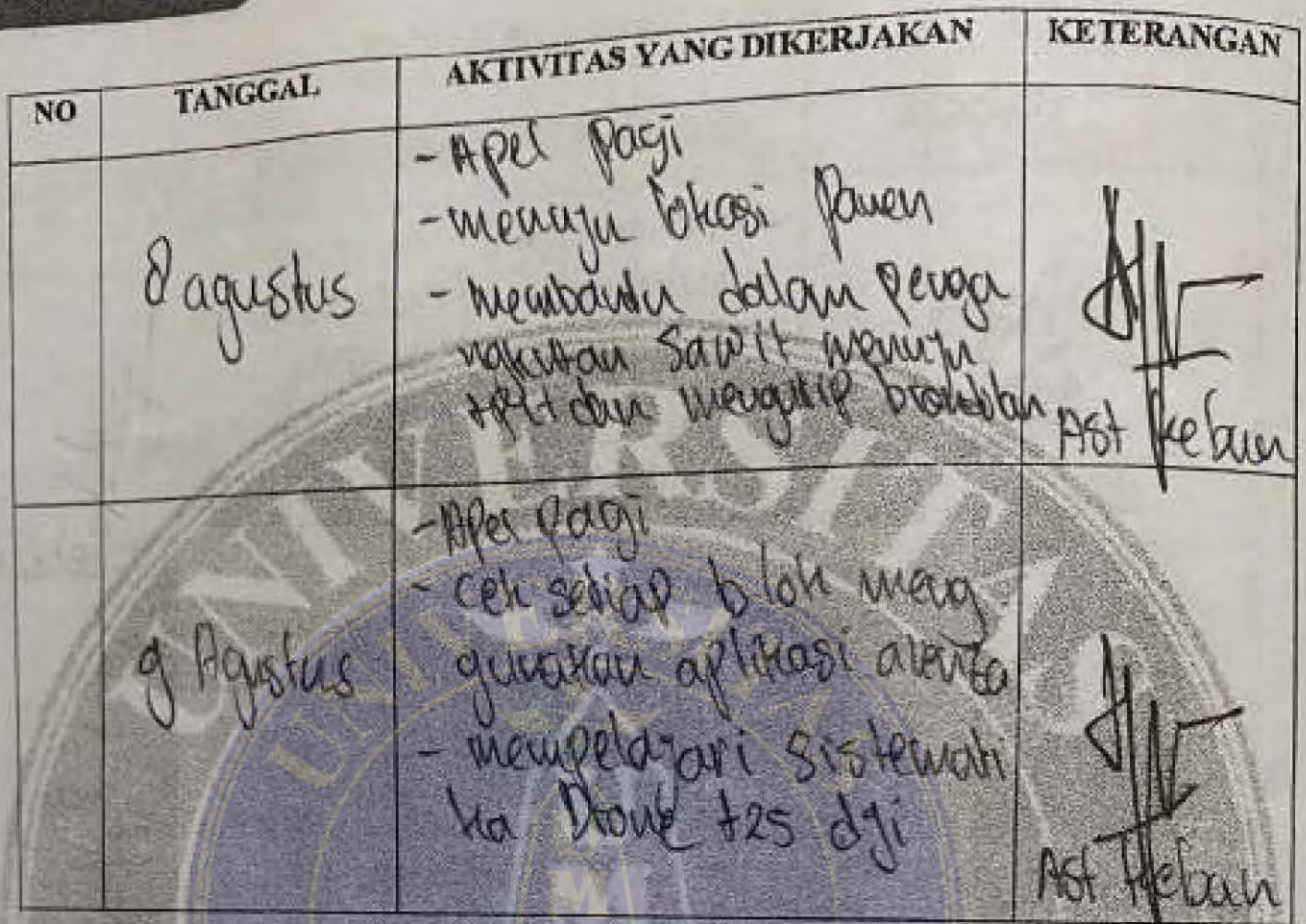 NO TANGGAL AKTIVITAS YANG DIKERJAKAN KETERANGAN
8 agustus
- Apel Pagi
- menuju lokasi Panen
- membantu dalam penga
ngkutan Sawit menuju
dan mengutip brondolan
Ast kebun
9 Agustus
- Apel Pagi
- cek setiap blok meng
gunakan aplikasi avenza
- mempelajari Sistemati
ka Drone t25 dji
Ast kebun
UNIVERSITAS
UNIVERSITA
UMI